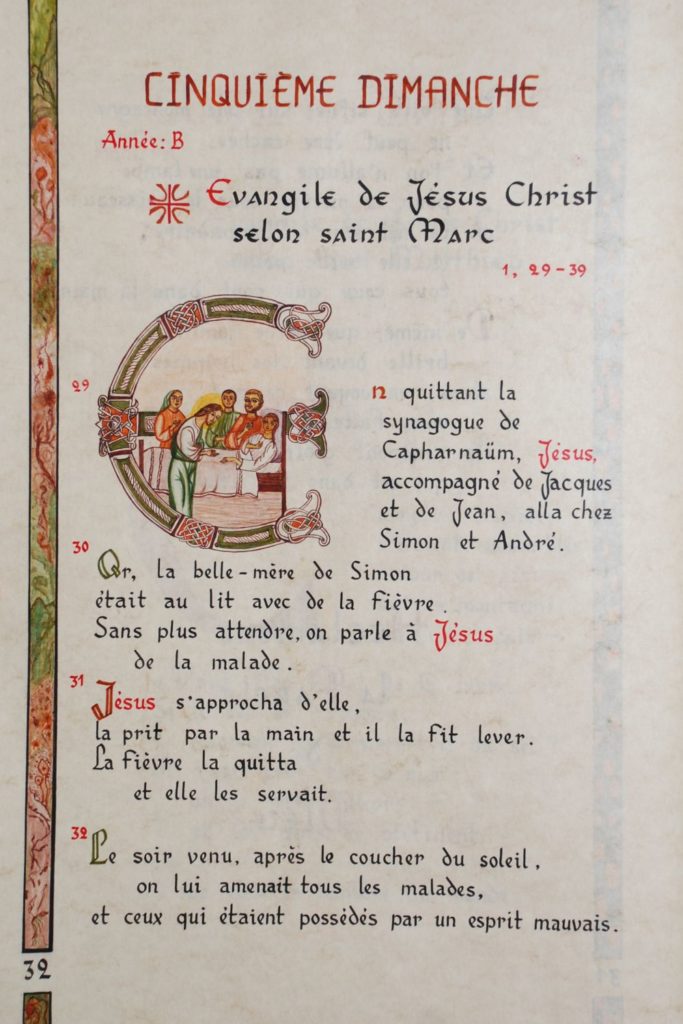 CINQUIÈME DIMANCHE
Année: B
Evangile de Jésus Christ
selon saint Marc
1, 29-39
29
En quittant la
synagogue de
Capharnaüm, Jésus,
accompagné de Jacques
et de Jean, alla chez
Simon et André.
30
Or, la belle-mère de Simon
était au lit avec de la fièvre.
Sans plus attendre, on parle à Jésus
de la malade.
31
Jésus s'approcha d'elle,
la prit par la main et il la fit lever.
La fièvre la quitta
et elle les servait.
32
Le soir venu, après le coucher du soleil,
on lui amenait tous les malades,
et ceux qui étaient possédés par un esprit mauvais.
32